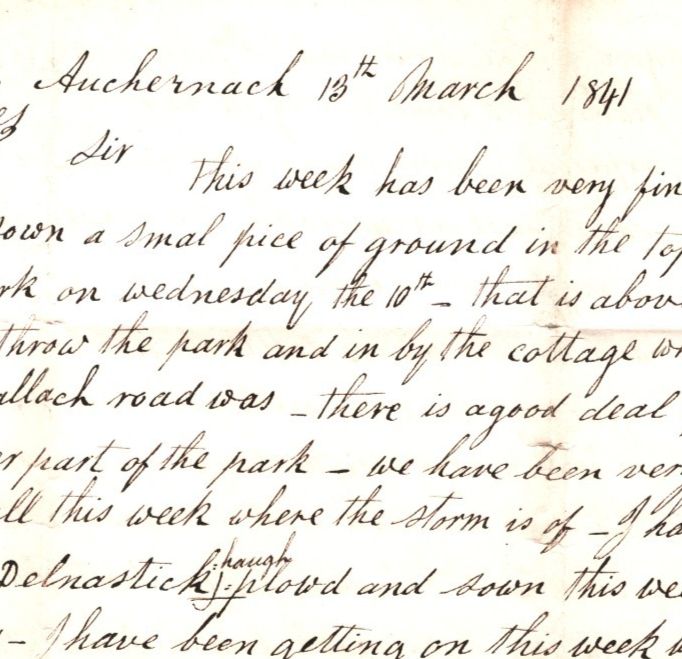 Auchernach 13th March 1841
Sir
This week has been very fin
sown a smal pice of ground in the top
rk on wednesday the 10th - that is abov
throw the park and in by the cottage w
allach road was - there is a good deal
er part of the park - we have been ver
ll this week where the storm is of - I ha
haugh
Delnastick plowd and sown this wee
- I have been getting on this week